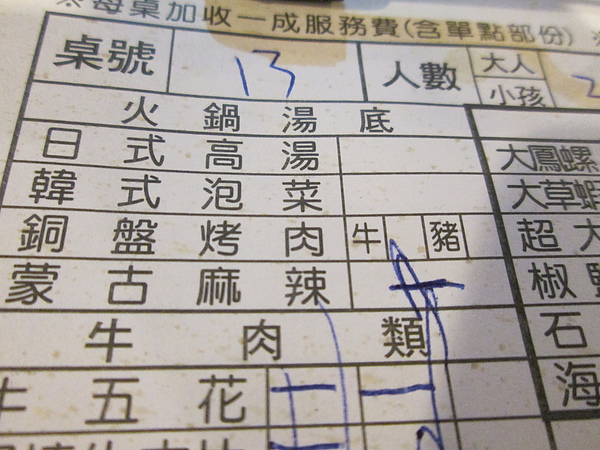 ※每桌加收一成服務費(含單點部份)
桌號 13 人數 大人 2
小孩
火鍋湯底
日式高湯 大鳳螺
韓式泡菜 大草蝦
銅盤烤肉 牛 豬 超大
蒙古麻辣 椒鹽
牛肉類 石
牛五花 一 一 海